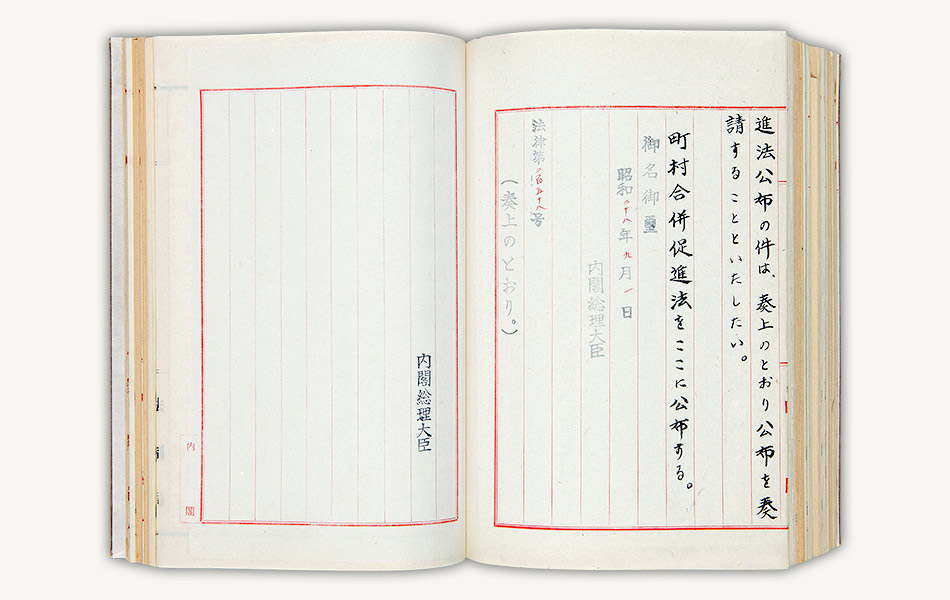 進法公布の件は、奏上のとおり公布を奏
請することといたしたい。
町村合併促進法をここに公布する。
御名御璽
昭和二十八年九月一日
内閣総理大臣
法律第二百五十八号
（奏上のとおり。）
内閣総理大臣
内閣